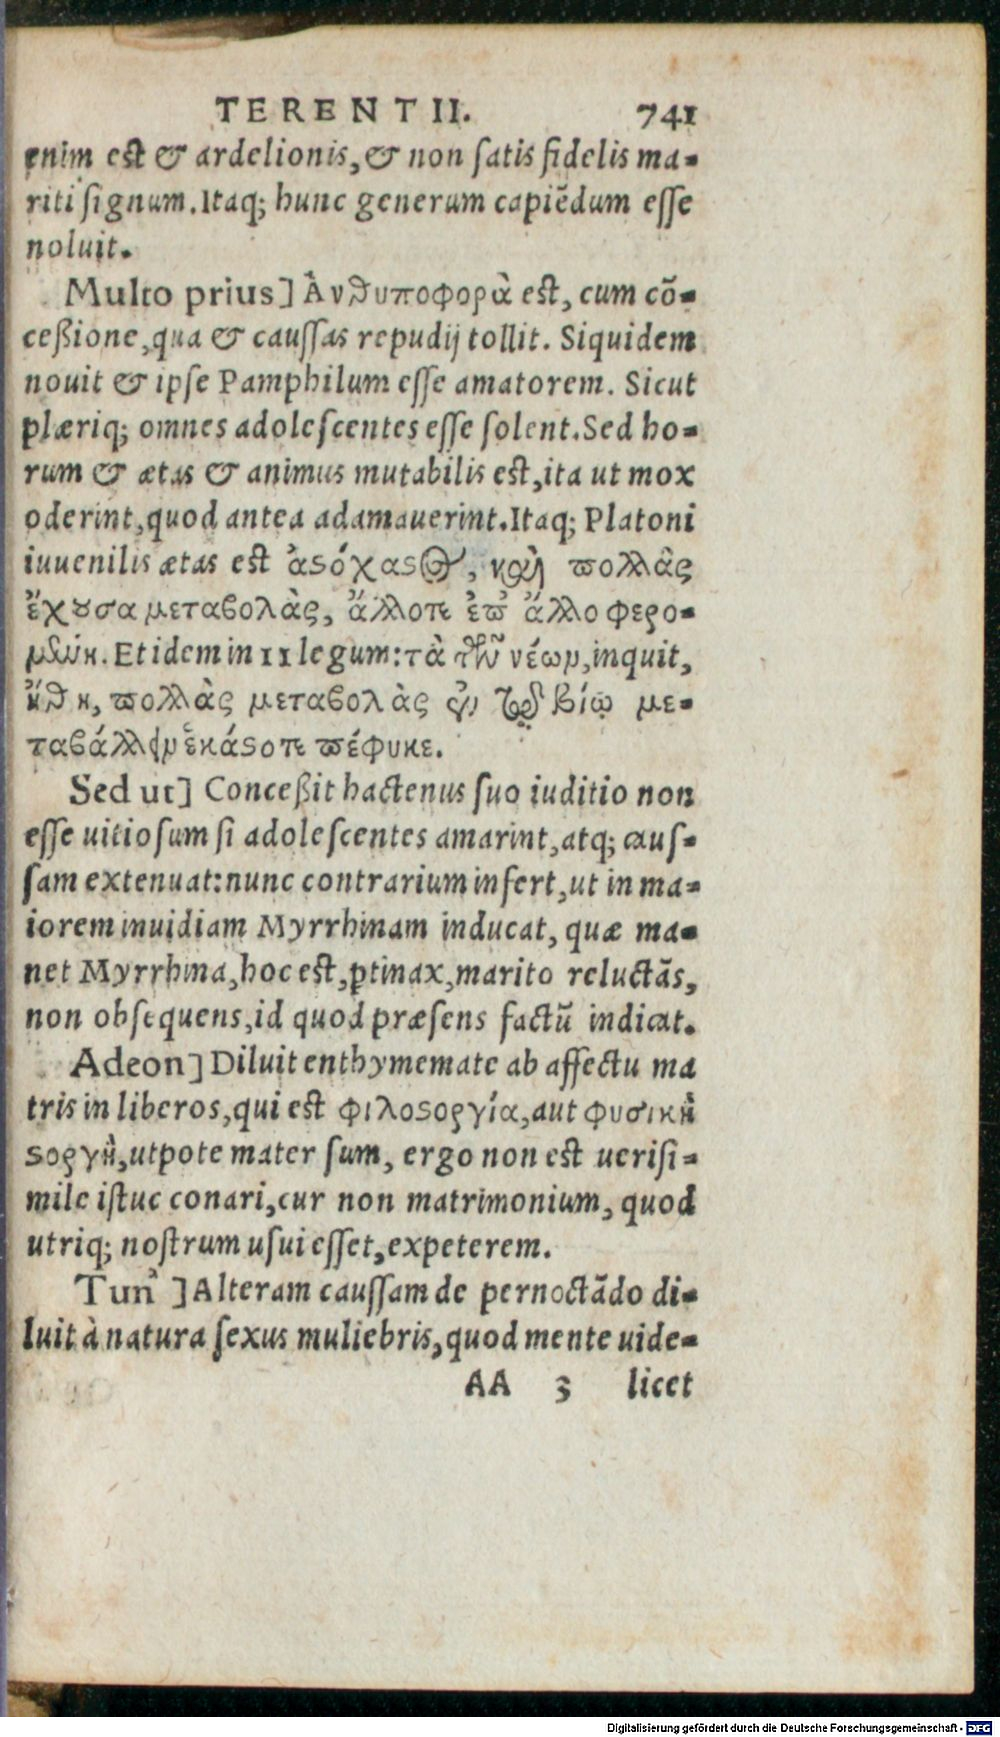 TERENTII. 741
enim est & ardelionis, & non satis fidelis ma-
riti signum. Itaq; hunc generum capiẽdum esse
noluit.
Multo prius] Ἀνθυποφορὰ est, cum cõ-
ceßione, qua & caussas repudij tollit. Siquidem
nouit & ipse Pamphilum esse amatorem. Sicut
plæriq; omnes adolescentes esse solent. Sed ho-
rum & ætas & animus mutabilis est, ita ut mox
oderint, quod antea adamauerint. Itaq; Platoni
iuuenilis ætas est ἀϛόχαϛος, καὶ πολλὰς
ἔχουσα μεταβολὰς, ἄλλοτε ἐπ' ἄλλο φερο-
μένη. Et idem in 11 legum: τὰ τῶν νέων, inquit,
ἤθη, πολλὰς μεταβολὰς ἐν τῷ βίῳ με-
ταβάλλειν ἑκάϛοτε πέφυκε.
Sed ut] Conceßit hactenus suo iuditio non
esse uitiosum si adolescentes amarint, atq; caus-
sam extenuat: nunc contrarium infert, ut in ma-
iorem inuidiam Myrrhinam inducat, quæ ma-
net Myrrhina, hoc est, ꝑtinax, marito reluctãs,
non obsequens, id quod præsens factũ indicat.
Adeon] Diluit enthymemate ab affectu ma
tris in liberos, qui est φιλοϛοργία, aut φυσικὴ
ϛοργὴ, utpote mater sum, ergo non est uerisi-
mile istuc conari, cur non matrimonium, quod
utriq; nostrum usui esset, expeterem.
Tun' ] Alteram caussam de pernoctãdo di-
luit à natura sexus muliebris, quod mente uide-
AA 3 licet
Digitalisierung gefördert durch die Deutsche Forschungsgemeinschaft - DFG